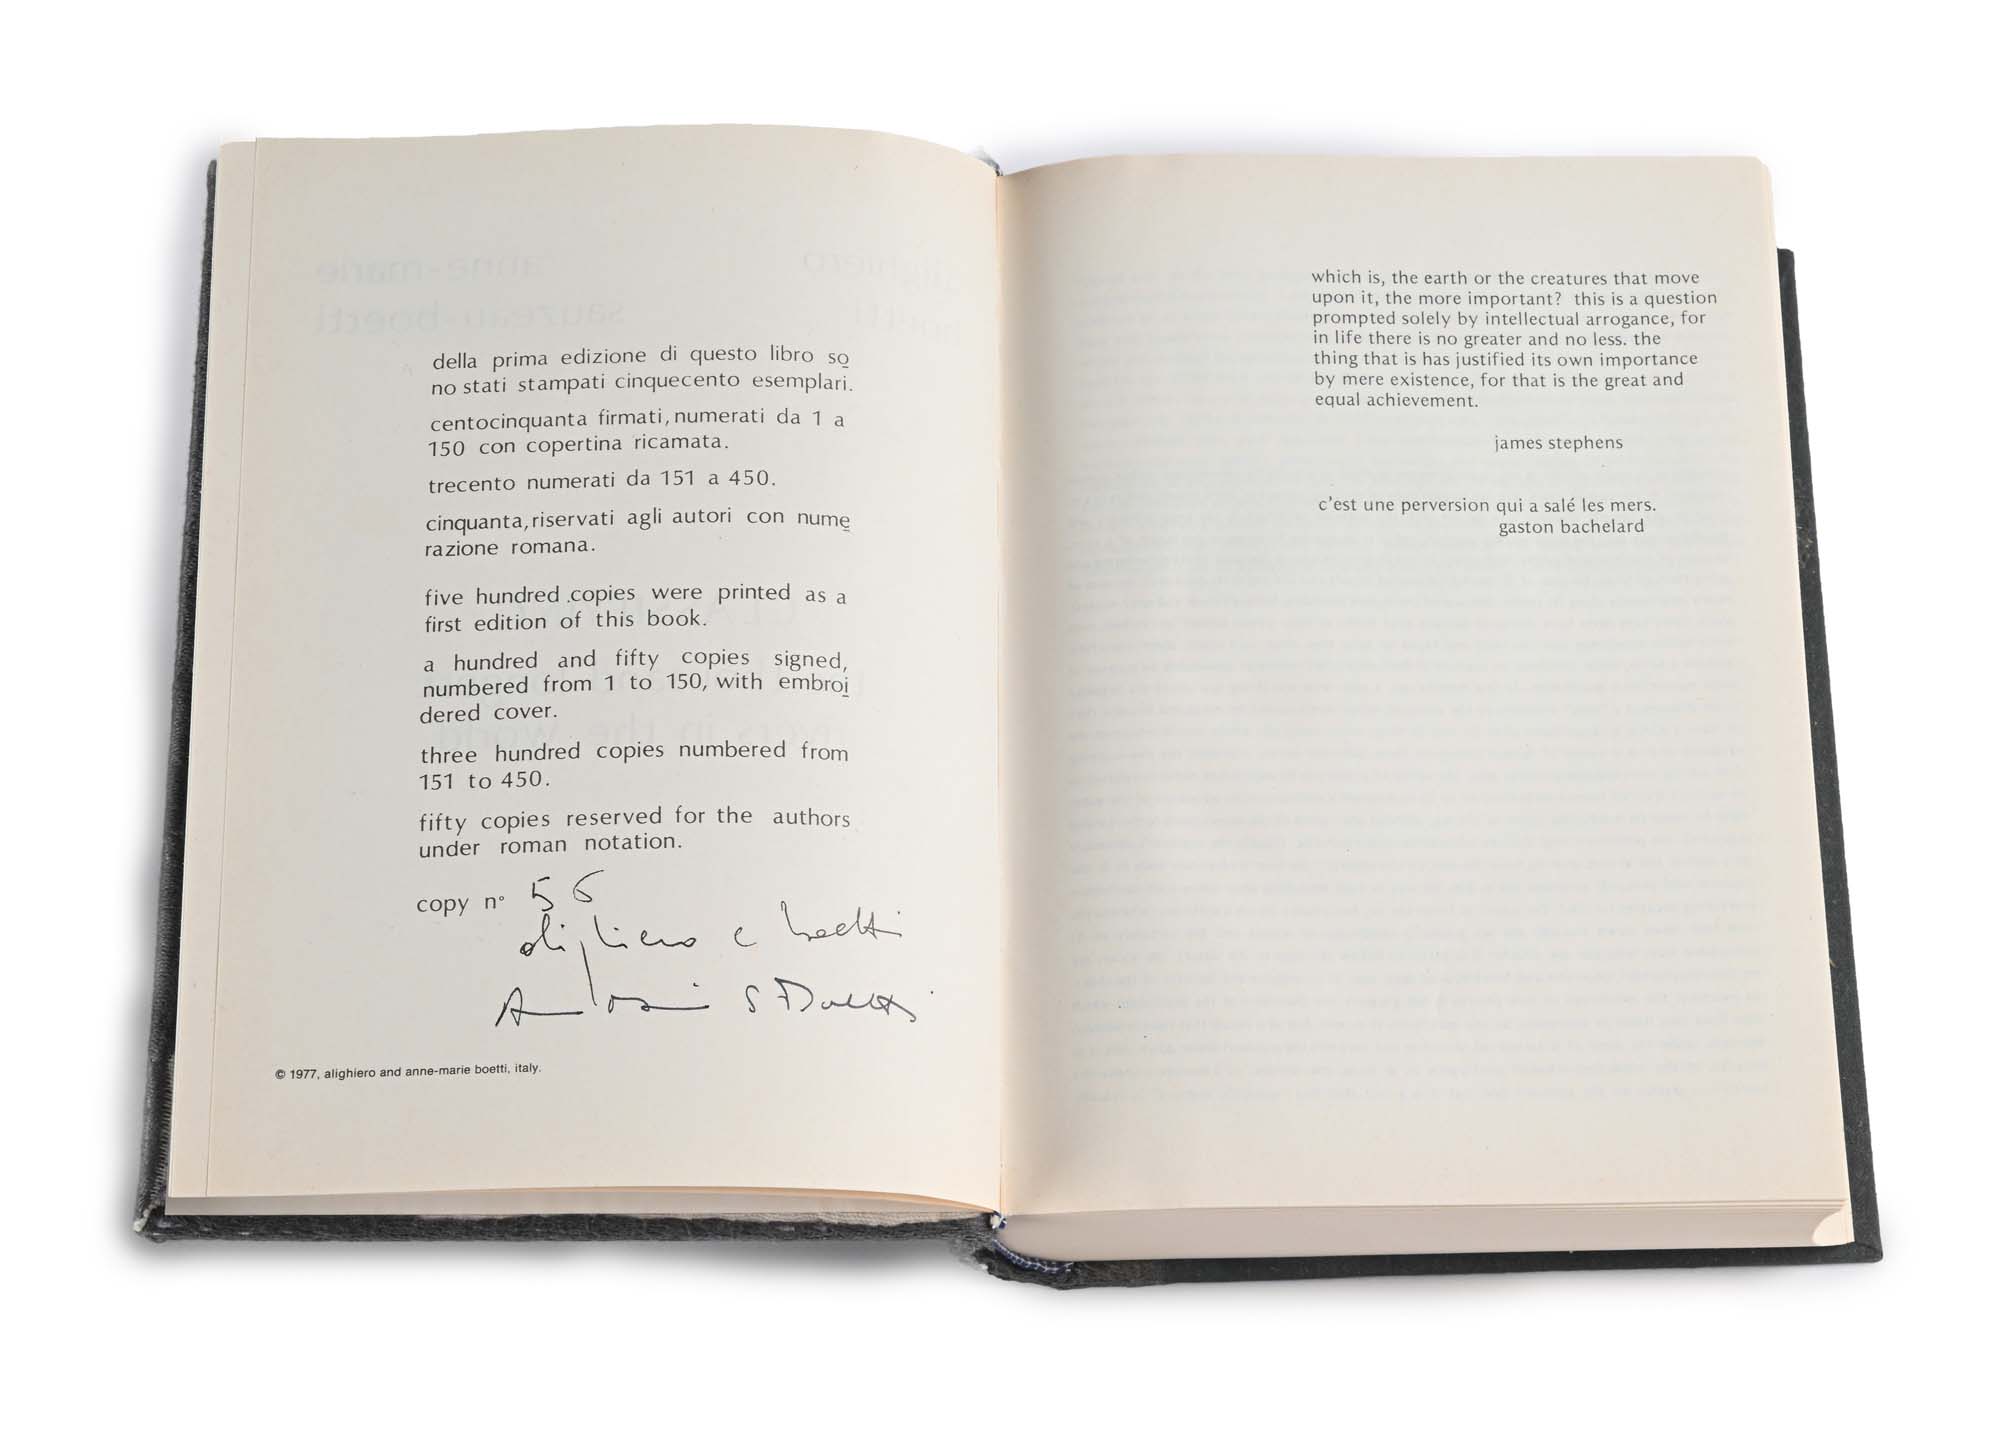 della prima edizione di questo libro so
no stati stampati cinquecento esemplari.
centocinquanta firmati, numerati da 1 a
150 con copertina ricamata.
trecento numerati da 151 a 450.
cinquanta, riservati agli autori con nume
razione romana.
five hundred copies were printed as a
first edition of this book.
a hundred and fifty copies signed,
numbered from 1 to 150, with embroi
dered cover.
three hundred copies numbered from
151 to 450.
fifty copies reserved for the authors
under roman notation.
copy n° 56
alighiero e boetti
© 1977, alighiero and anne-marie boetti, italy.
which is, the earth or the creatures that move
upon it, the more important? this is a question
prompted solely by intellectual arrogance, for
in life there is no greater and no less. the
thing that is has justified its own importance
by mere existence, for that is the great and
equal achievement.
james stephens
c'est une perversion qui a salé les mers.
gaston bachelard